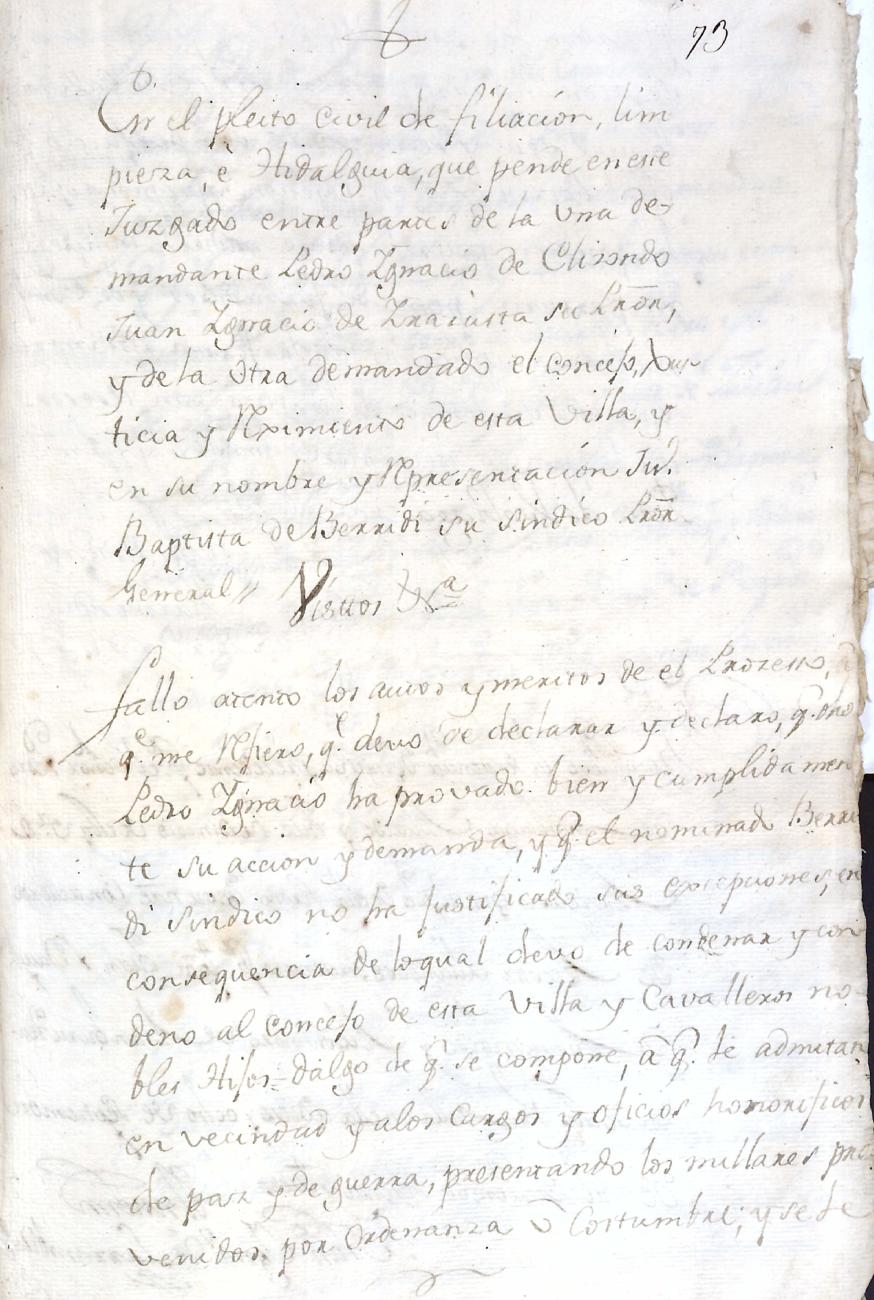 73
En el pleito Civil de filiación, lim
pieza, è Hidalguia, que pende en este
Juzgado entre partes de la una de-
mandante Pedro Ygnacio de Elisondo
Juan Ygnacio de Yraiusta su Prõr,
y de la otra demandado el concejo, Jus
ticia y Rximiento de esta Villa, y
en su nombre y Representación Juº.
Baptista de Berridi su sindico Prõr.
General // Visttos &ª
fallo atento los autos y meritos de el Prozesso, â
q.e me Refiero, q.e devo de declarar y declaro, q.e dho
Pedro Ygnacio ha provado bien y cumplidamen
te su accion y demanda, y q.e el nominado Berri
di sindico no ha justificado sus excepciones, en
consequencia de lo qual devo de condenar y con
deno al concejo de esta Villa y Cavalleros no-
bles Hijos=dalgo de q.e se compone, â q.e le admitan
en vecindad y a los Cargos y oficios honorificos
de paz y de guerra, presentando los millares pre
venidos por Ordenanza ô Costumbre; y se le